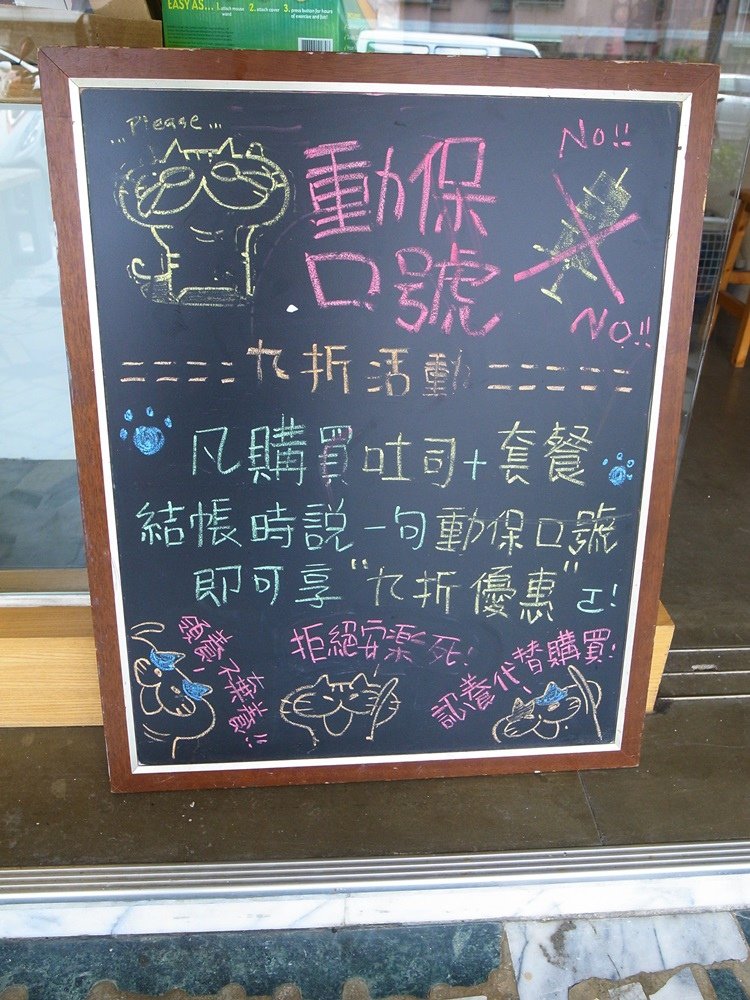 EASY AS... 1. attach mouse wand 2. attach cover 3. press button for hours of exercise and fun!
"Please...
No!!
動保
口號
No!!
====九折活動=====
凡購買吐司+套餐
結帳時說一句動保口號
即可享"九折優惠"ㄛ!
領養,不棄養!!
拒絕安樂死!
認養代替購買!